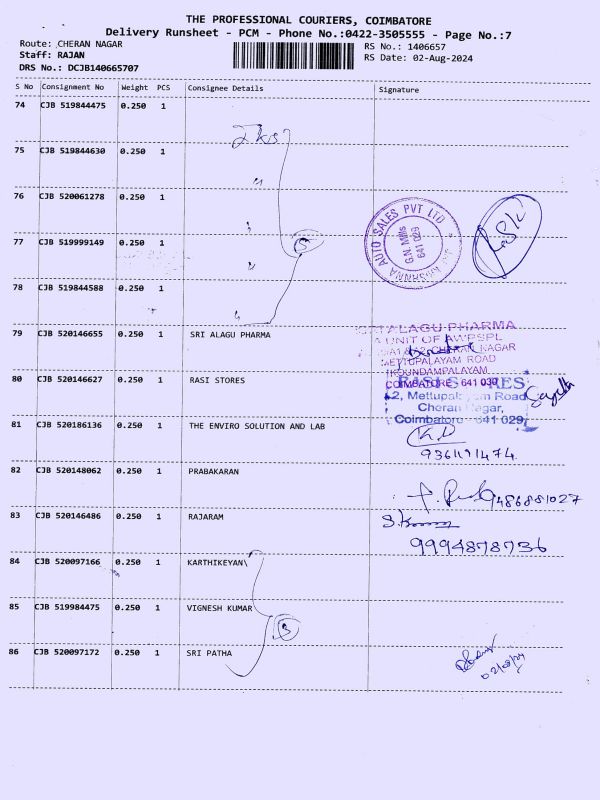 THE PROFESSIONAL COURIERS, COIMBATORE
Delivery Runsheet - PCM - Phone No.:0422-3505555 - Page No.:7
Route: CHERAN NAGAR RS No.: 1406657
Staff: RAJAN RS Date: 02-Aug-2024
DRS No.: DCJB140665707
S No Consignment No Weight PCS Consignee Details Signature
74 CJB 519844475 0.250 1
75 CJB 519844630 0.250 1
76 CJB 520061278 0.250 1
AUTO SALES PVT LTD
G.N. Mills
641 029
77 CJB 519999149 0.250 1 5
78 CJB 519844588 0.250 1
79 CJB 520146655 0.250 1 SRI ALAGU PHARMA
ALAGU PHARMA
A UNIT OF AWPSPL
CHERAN NAGAR
METTUPALAYAM ROAD
KOUNDAMPALAYAM,
COIMBATORE 641 030
80 CJB 520146627 0.250 1 RASI STORES
Road
Cheran Nagar,
Coimbatore 641 029
81 CJB 520186136 0.250 1 THE ENVIRO SOLUTION AND LAB
82 CJB 520148062 0.250 1 PRABAKARAN
9486881027
83 CJB 520146486 0.250 1 RAJARAM
9994878736
84 CJB 520097166 0.250 1 KARTHIKEYAN\
85 CJB 519984475 0.250 1 VIGNESH KUMAR
86 CJB 520097172 0.250 1 SRI PATHA